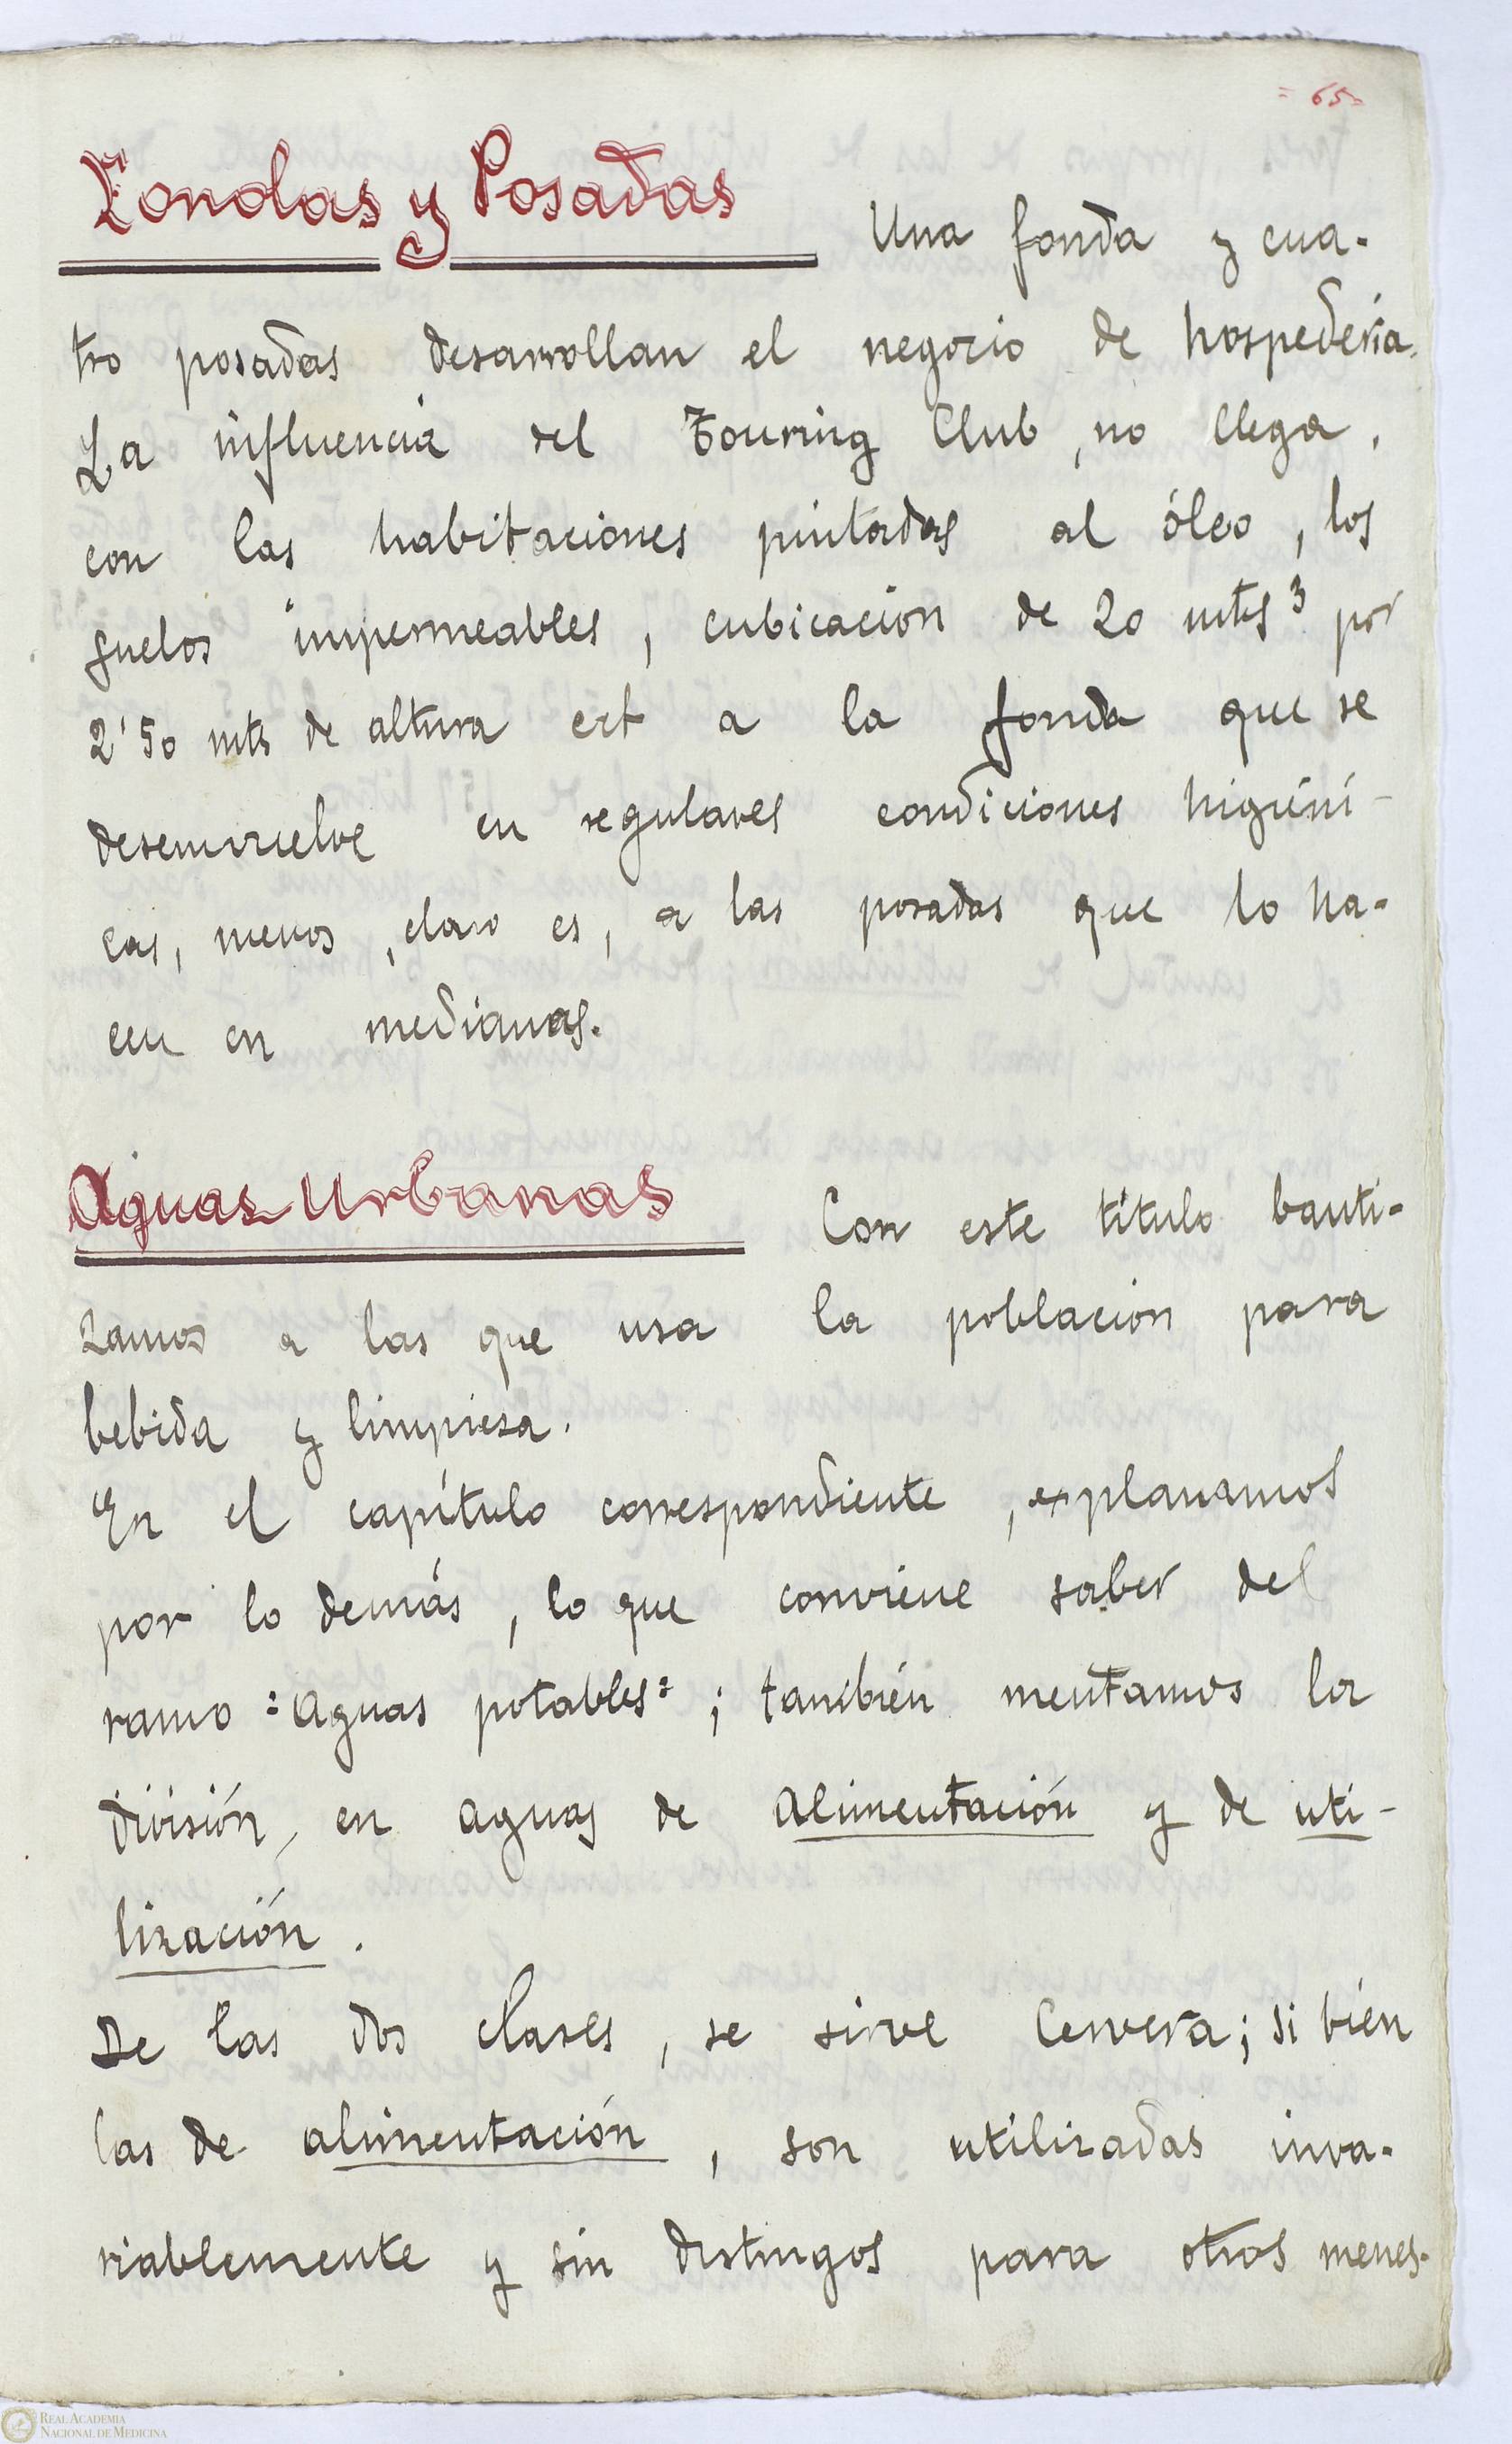 = 65=
Fondas y Posadas
Una fonda y cua-
tro posadas desarrollan el negocio de hospedería.
La influencia del Touring Club, no llega,
con las habitaciones pintadas al óleo, los
suelos impermeables, cubicación de 20 mts³ por
2'50 mts de altura ect a la fonda que se
desenvuelve en regulares condiciones higiéni-
cas, menos, claro es, a las posadas que lo ha-
cen en medianas.
Aguas Urbanas
Con este título bauti-
zamos a las que usa la población para
bebida y limpieza.
En el capítulo correspondiente, explanamos
por lo demás, lo que conviene saber del
ramo = Aguas potables = ; también mentamos la
división, en aguas de alimentación y de uti-
lización.
De las dos clases, se sirve Cervera; si bien
las de alimentación, son utilizadas inva-
riablemente y sin distingos para otros menes-
REAL ACADEMIA
NACIONAL DE MEDICINA